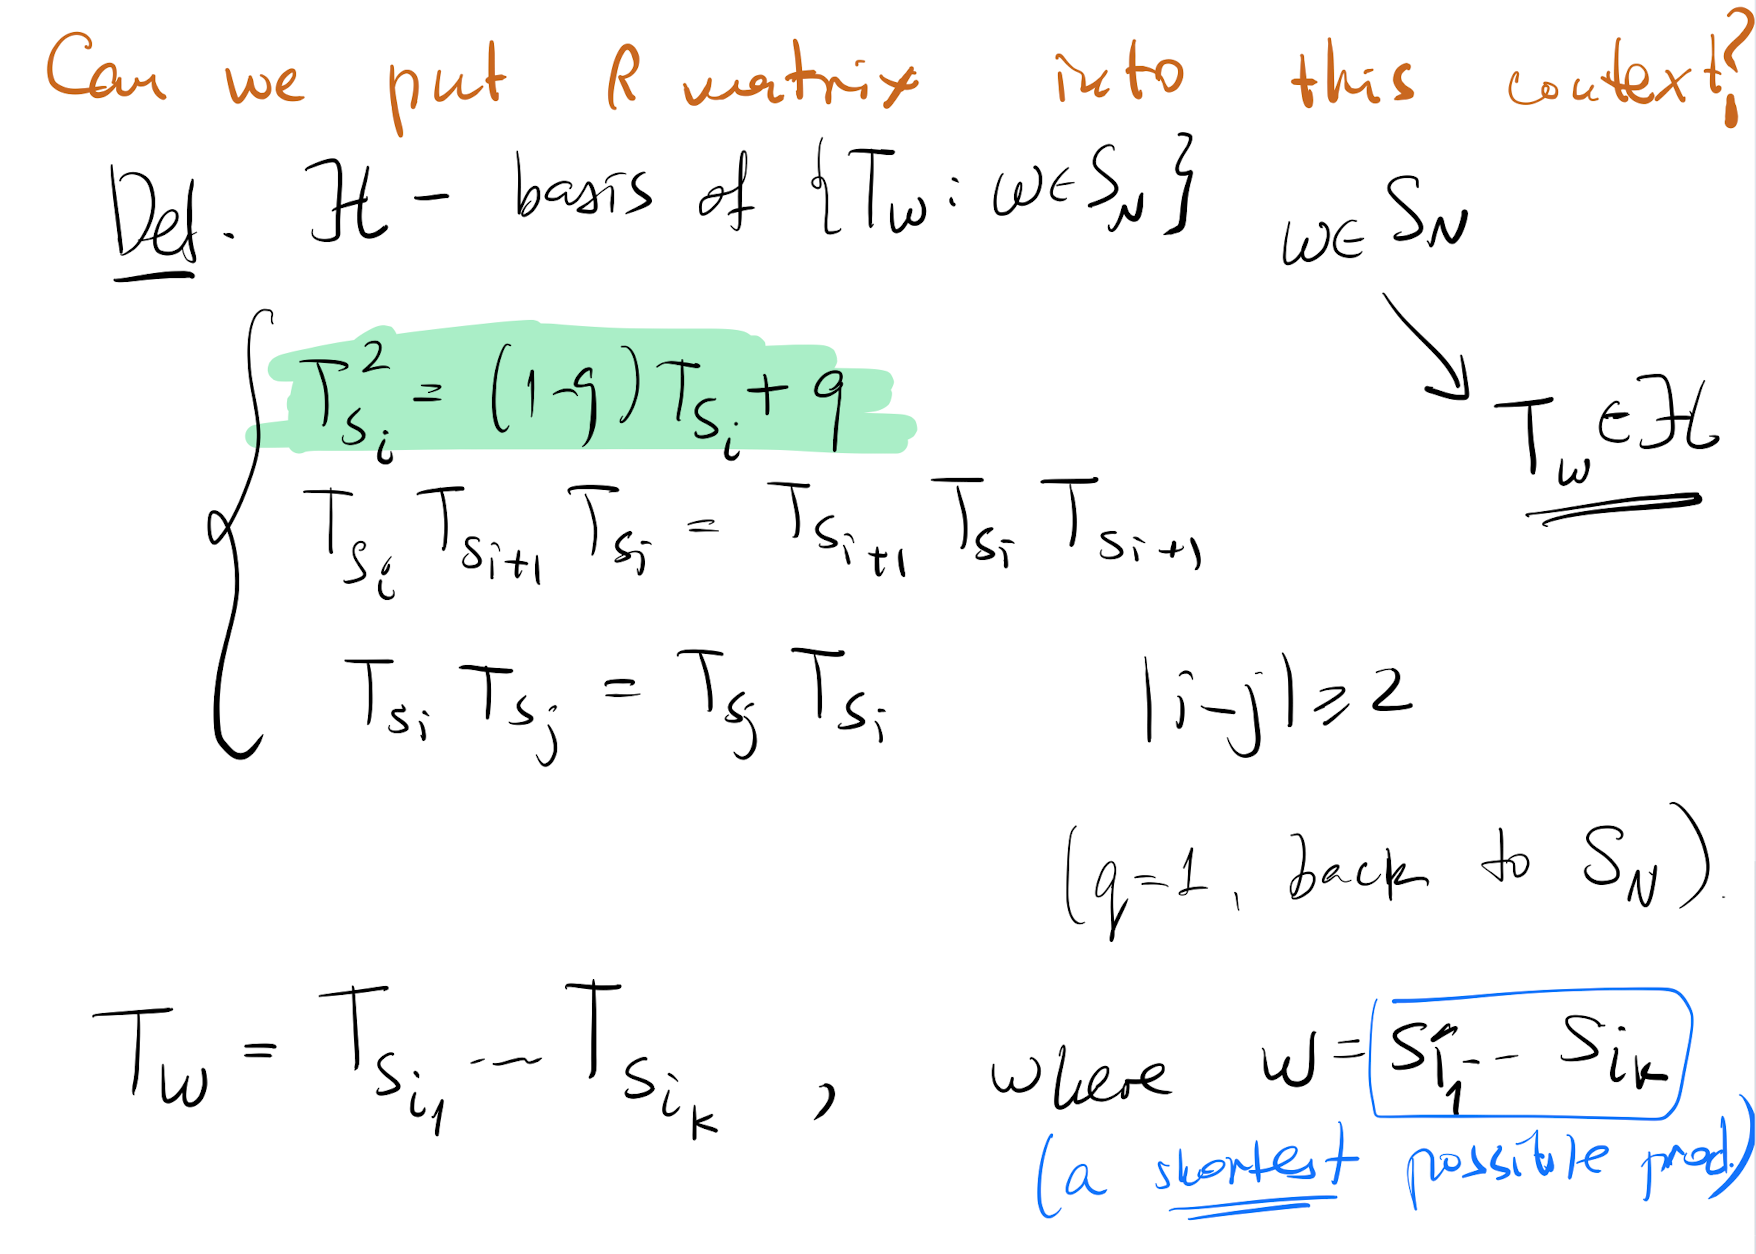 Can we put R matrix into this context?
Def. ℋ – basis of {T_w : w∈S_N}
w∈ S_N
T_{s_i}^2 = (1-q) T_{s_i} + q
T_w ∈ ℋ
T_{s_i} T_{s_{i+1}} T_{s_i} = T_{s_{i+1}} T_{s_i} T_{s_{i+1}}
T_{s_i} T_{s_j} = T_{s_j} T_{s_i} |i-j| ⩾ 2
(q=1, back to S_N).
T_w = T_{s_{i_1}} ... T_{s_{i_k}} , where w = s_{i_1} ... s_{i_k}
(a shortest possible prod.)